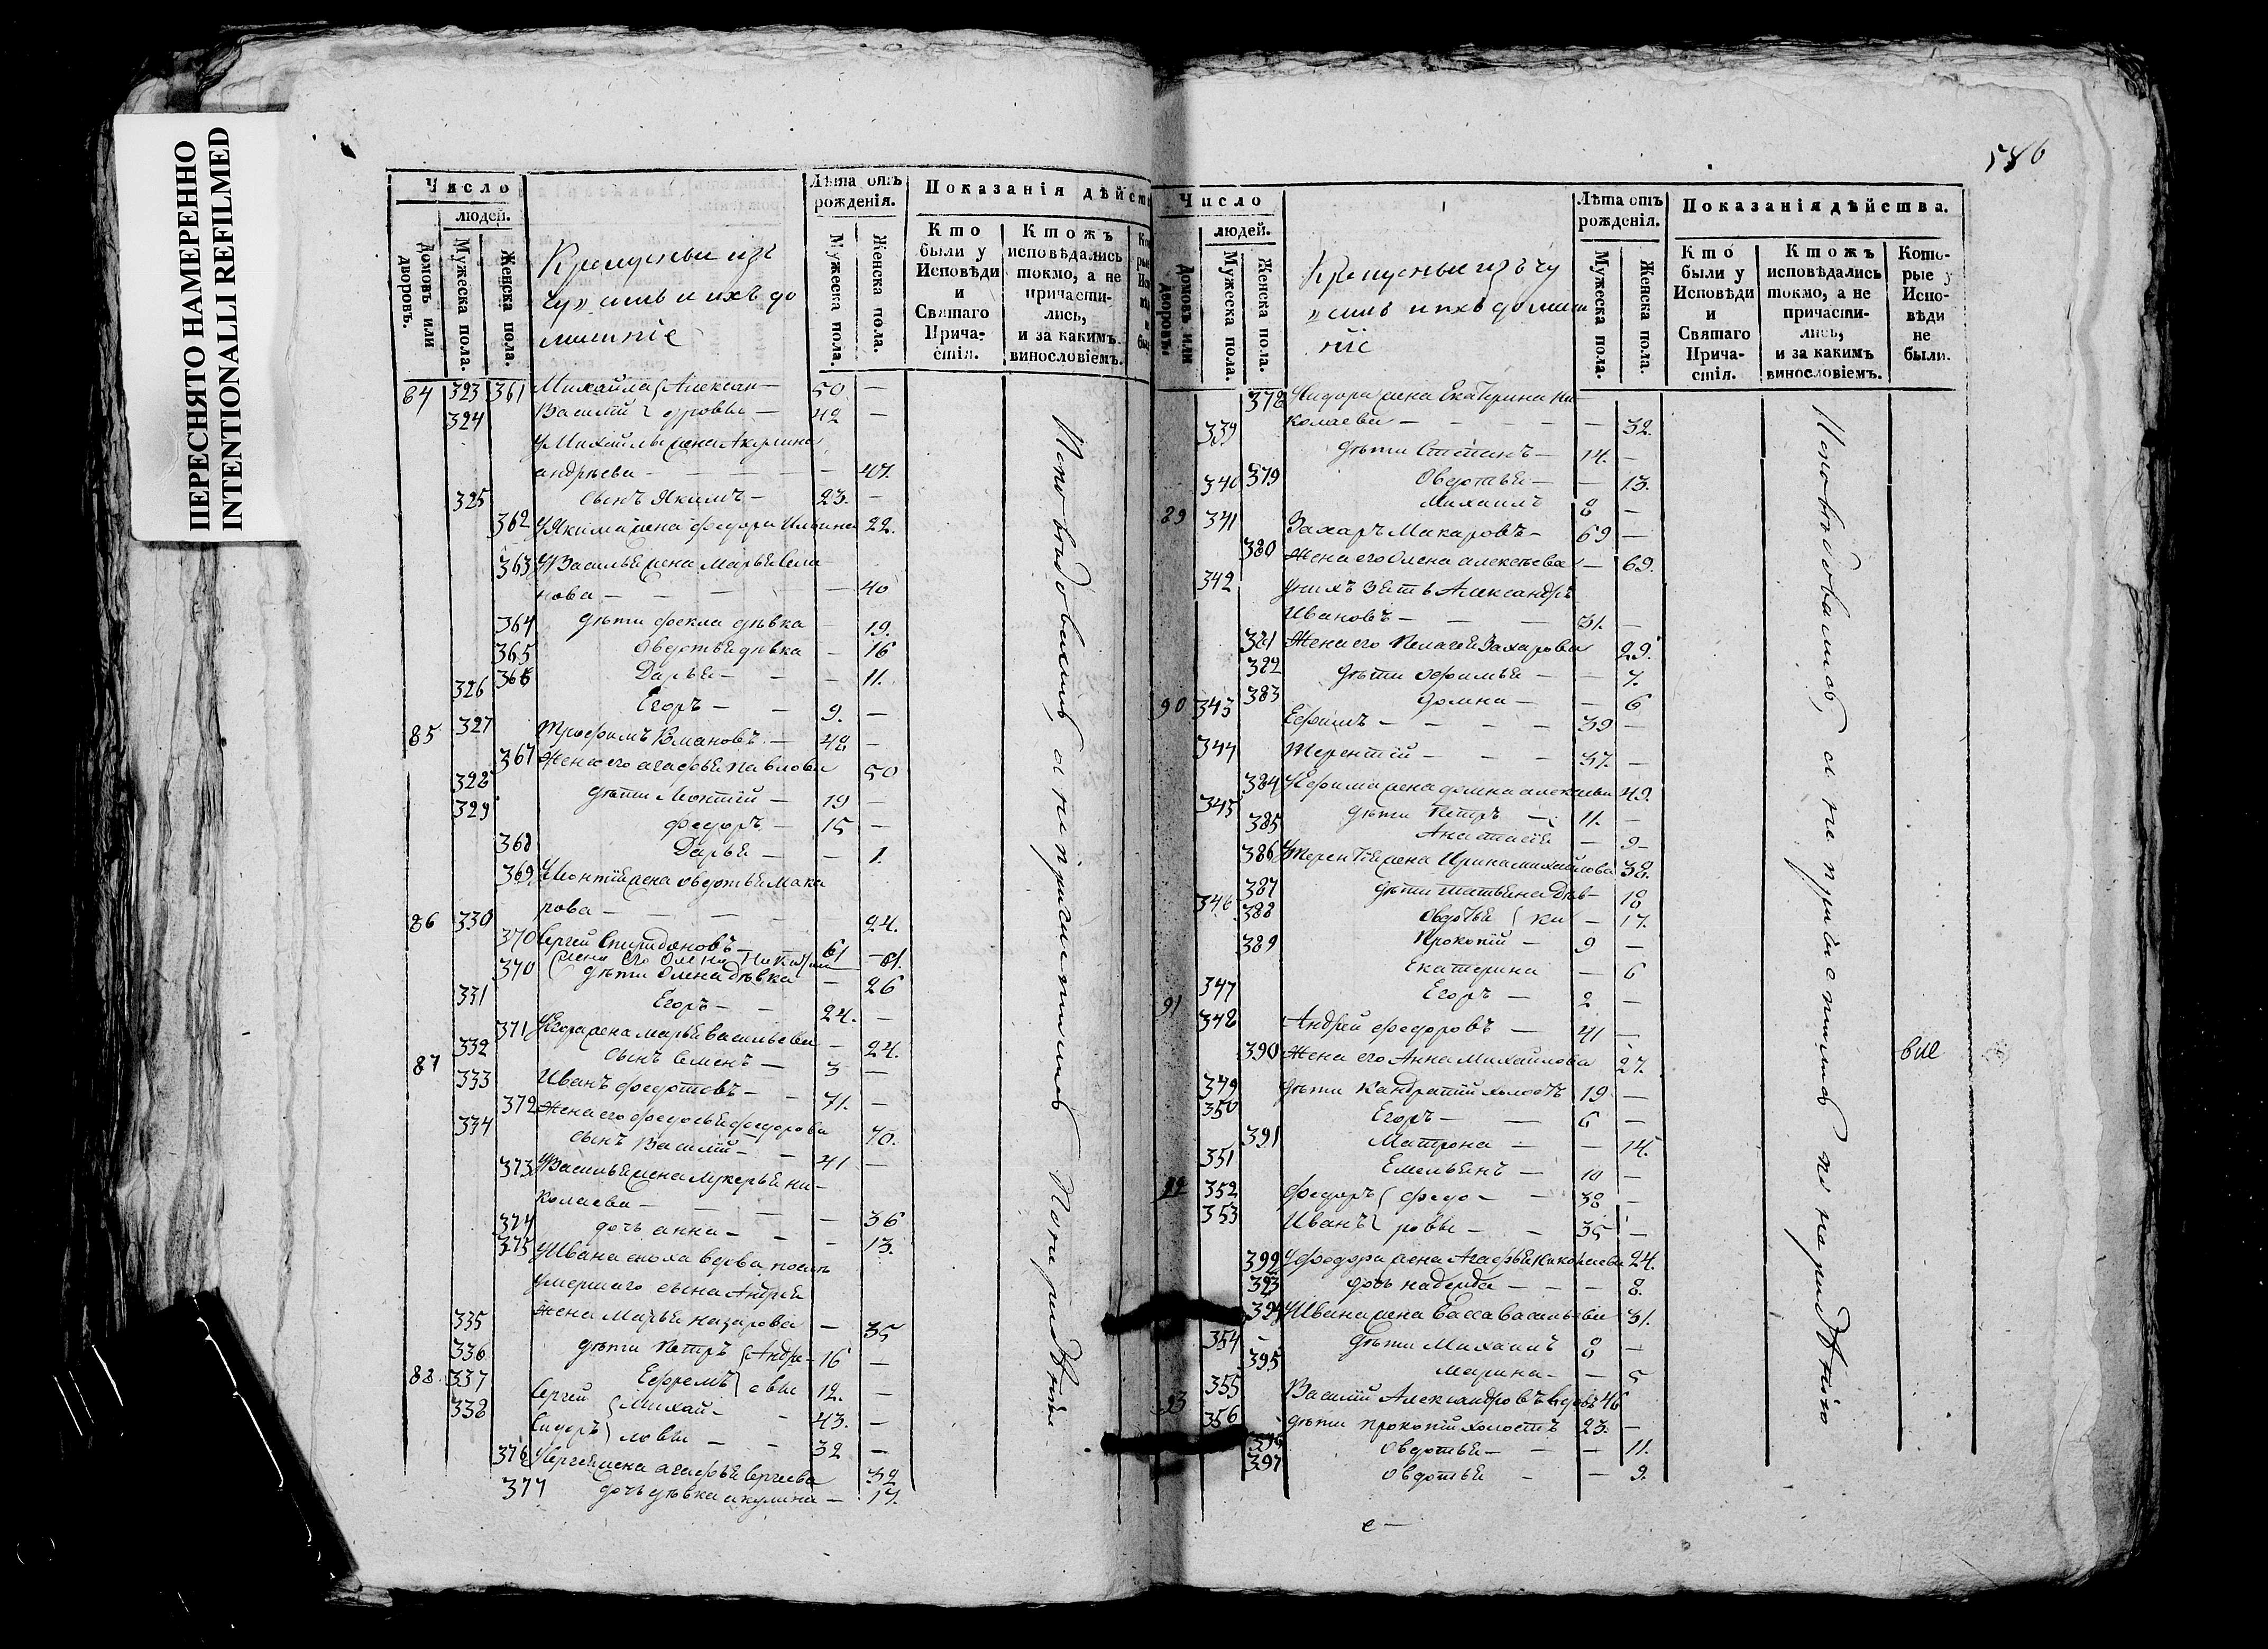 ПЕРЕСНЯТО НАМЕРЕННО
INTENTIONALLI REFILMED
Число
людей.
Домовъ или дворовъ.
Мужеска пола.
Женска пола.
Крещеные изъ
чу»ашъ и ихъ до
машніе
Лѣта отъ рожденія.
Мужеска пола.
Женска пола.
Показанія дѣйст
Кто были у Исповѣди и Святаго Прича-стія.
Ктожъ исповѣдались токмо, а не причасти-лись, и за какимъ винословіемъ.
84 323 361 Михайла Алексан- 50 —
324 Василій дровы — 42 —
У Михайлы жена Акулина
андрѣева — — 47.
325 сынъ Якимъ — 23. —
362 У Якима жена федора 22.
363 У Василья жена Марья
нова — — 40
364 дѣти фекла дѣвка — 19.
365 овдотья дѣвка — 16
366 Дарья — — 11.
326 Егоръ — — 9. —
85 327 трофимъ — 48 —
367 Жена его агафья павлова 50
328 дѣти Леонтій — 19 —
329 федоръ — 15 —
368 Дарья — — 1.
369 У Леонтья жена овдотья Мака
рова — — 24.
86 330 Сергей Спиридоновъ — 61 —
370 жена его Олена 61.
370 дѣти Олена дѣвка — 26
331 Егоръ — 24. —
371 У Егора жена марья васильева — 24.
332 сынъ Семенъ — 3 —
87 333 Иванъ федотовъ — 71. —
372 Жена его федосья федорова 70.
334 сынъ Василій — 41 —
373 У Василья жена лукерья ни-
колаева — — 36
374 дочь анна — — 13.
375 У Ивана сноха вдова послѣ
умершаго сына Андрея
жена Марья назарова — 35
335 дѣти Петръ Андре- 16 —
336 Ефремъ евы 12. —
88 337 Сергей Михай- 43. —
338 Сидоръ ловы — 32 —
376 У Сергея жена агафья сергеева 42
377 дочь дѣвка акулина — 17.
Исповѣдовались а не причастились по нерадѣнію
586
Число
людей.
Домовъ или дворовъ.
Мужеска пола.
Женска пола.
Крещеные изъ чу
»ашъ и ихъ домаш
ніе
Лѣта отъ рожденія.
Мужеска пола.
Женска пола.
Показанія дѣйства.
Кто были у Исповѣди и Святаго Прича-стія.
Ктожъ исповѣдались токмо, а не причасти-лись, и за какимъ винословіемъ.
Кото-рые у Испо-вѣди не были.
378 У Сидора жена Екатерина Ни-
колаева — — 32.
339 дѣти Степанъ — 14. —
379 Овдотья — — 13.
340 Михаилъ 8 —
89 341 Захаръ Макаровъ — 69 —
380 Жена его Олена алексѣева — 69.
342 У нихъ зять Александръ
Ивановъ — — 31. —
381 Жена его Пелагея Захарова 29.
382 дѣти офимья — — 7.
383 домна — — 6
90 343 Ефимъ — — 39 —
344 Терентій — — 37. —
384 У Ефима жена домна алексѣева 49.
345 дѣти Петръ — 11. —
385 Анастасія — 9 —
386 У Терентья жена Ирина михайлова 38.
387 дѣти татьяна дѣв- 18
388 овдотья ки — 17.
346 Прокопій — 9 —
389 Екатерина — 6
347 Егоръ — 2 —
91 348 Андрей федоровъ — 41 —
390 Жена его Анна Михайлова 27.
349 дѣти Кандратій холостъ 19 —
350 Егоръ — 6 —
391 Матрона — — 14.
351 Емельянъ — 10 —
92 352 Федоръ федо- — 38 —
353 Иванъ ровы — 35 —
392 У федора жена Агафья николаева 24.
393 дочь надежда — — 8.
394 У Ивана жена Васса васильева 31.
354 дѣти Михаилъ 8 —
395 Марина — — 5
93 355 Василій Александровъ вдовъ 46
356 дѣти прокопій холостъ 23. —
396 овдотья — — 11.
397 овдотья — — 9.
Исповѣдовались, а не причастились по нерадѣнію